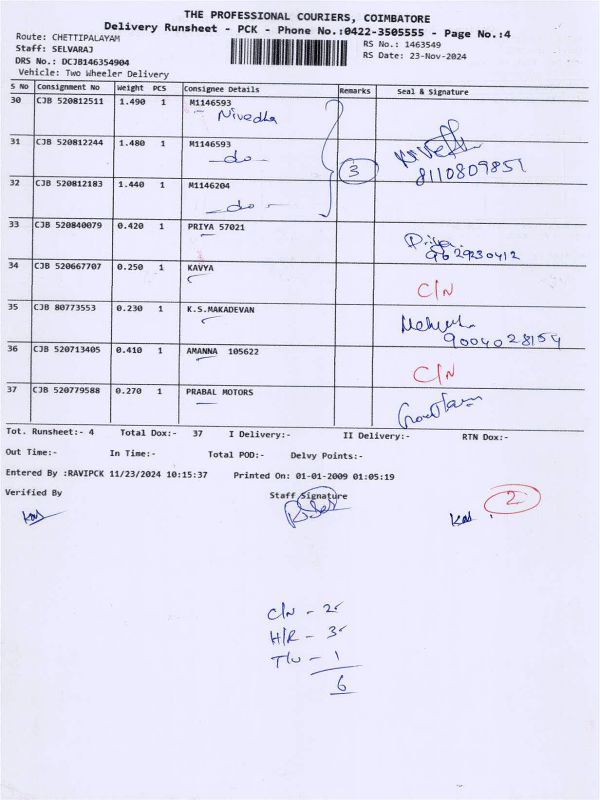 THE PROFESSIONAL COURIERS, COIMBATORE
Delivery Runsheet - PCK - Phone No.:0422-3505555 - Page No.:4
Route: CHETTIPALAYAM
Staff: SELVARAJ
DRS No.: DCJB146354904
Vehicle: Two Wheeler Delivery
RS No.: 1463549
RS Date: 23-Nov-2024
S No Consignment No Weight PCS Consignee Details Remarks Seal & Signature
30 CJB 520812511 1.490 1 M1146593
Nivedha
31 CJB 520812244 1.480 1 M1146593
-do-
3
8110809857
32 CJB 520812183 1.440 1 M1146204
-do-
33 CJB 520840079 0.420 1 PRIYA 57021
Priya
9629230412
34 CJB 520667707 0.250 1 KAVYA
C/N
35 CJB 80773553 0.230 1 K.S.MAKADEVAN
9004028154
36 CJB 520713405 0.410 1 AMANNA 105622
C/N
37 CJB 520779588 0.270 1 PRABAL MOTORS
Tot. Runsheet:- 4 Total Dox:- 37 I Delivery:- II Delivery:- RTN Dox:-
Out Time:- In Time:- Total POD:- Delvy Points:-
Entered By :RAVIPCK 11/23/2024 10:15:37 Printed On: 01-01-2009 01:05:19
Verified By Staff Signature
2
C/N - 2
H/R - 3
T/U - 1
6